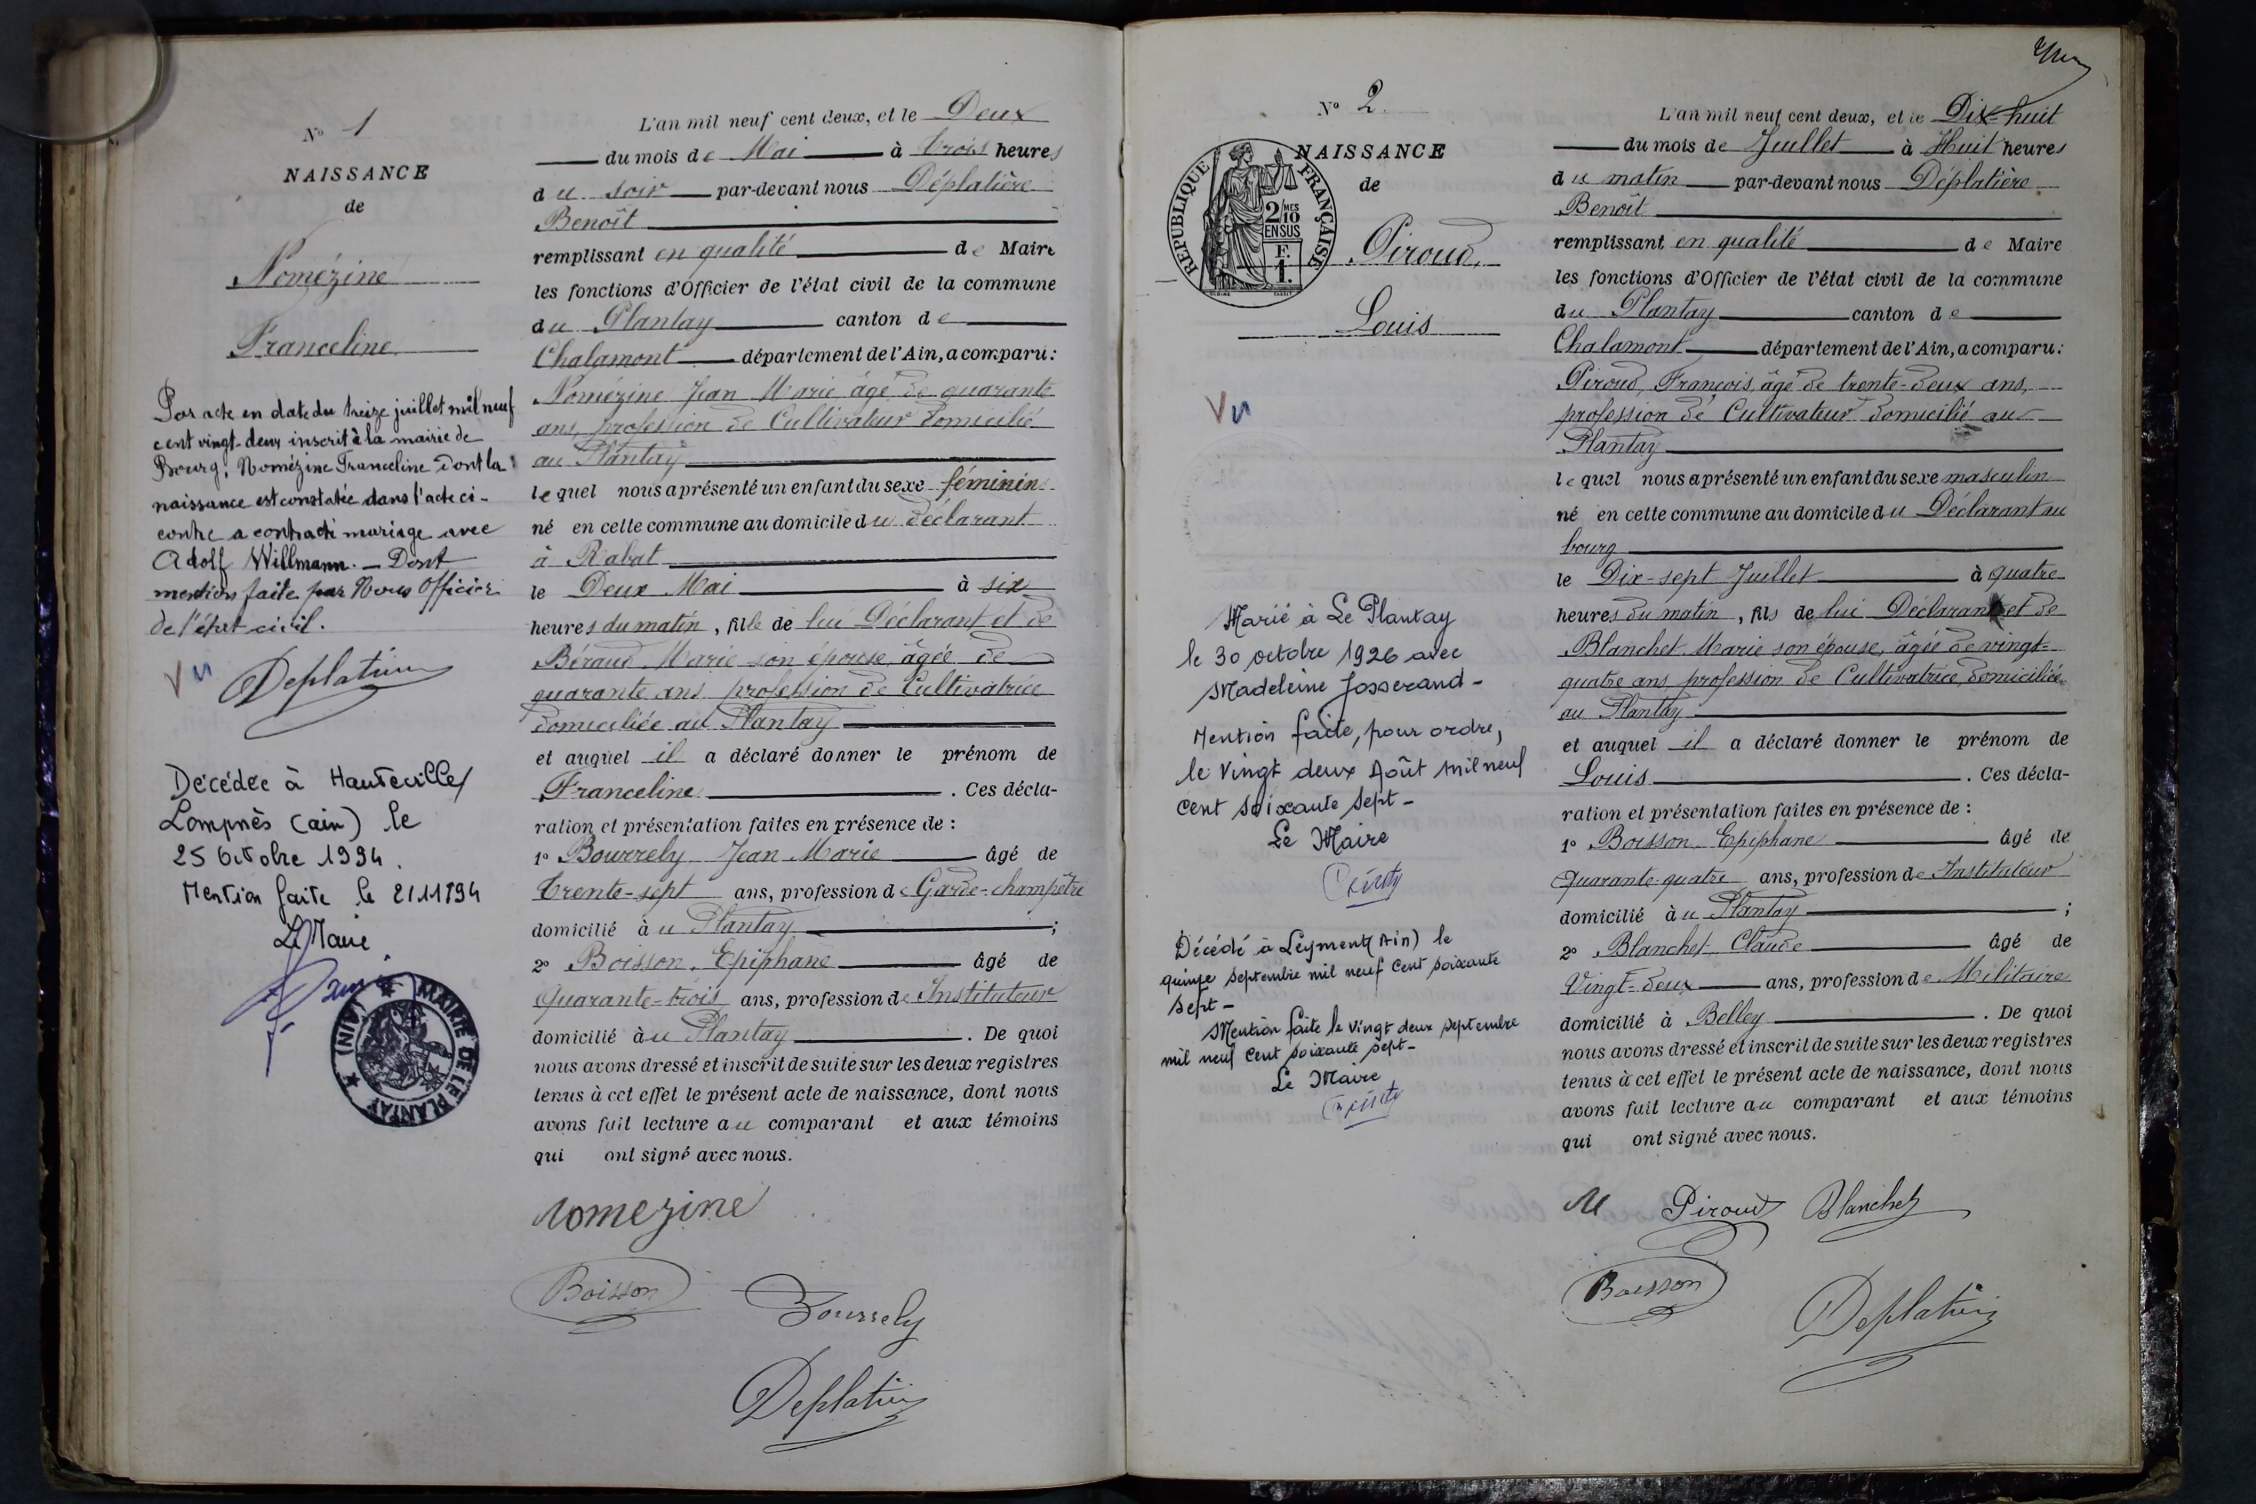 Nº 1
NAISSANCE
de
Nomézine
Franceline
Par acte en date du treize juillet mil neuf
cent vingt-deux inscrit à la mairie de
Bourg, Nomézine Franceline dont la
naissance est constatée dans l'acte ci-
contre a contracté mariage avec
Adolf Willmann. — Dont
mention faite par Nous Officier
de l'état civil.
Vu
Deplatière
Décédée à Hauteville
Lompnès (ain) le
25 Octobre 1994.
Mention faite le 2/11/94
Le Maire
MAIRIE DE LE PLANTAY
★ (AIN) ★
L'an mil neuf cent deux, et le Deux
du mois de Mai à trois heures
du soir par-devant nous Déplatière
Benoît
remplissant en qualité de Maire
les fonctions d'Officier de l'état civil de la commune
du Plantay canton de
Chalamont département de l'Ain, a comparu:
Nomézine Jean Marie âgé de quarante
ans, profession de Cultivateur domicilié
au Plantay
lequel nous a présenté un enfant du sexe féminin
né en cette commune au domicile du déclarant
à Rabat
le Deux Mai à six
heures du matin, fille de lui Déclarant et de
Béraud Marie son épouse, âgée de
quarante ans, profession de Cultivatrice
domiciliée au Plantay
et auquel il a déclaré donner le prénom de
Franceline. Ces décla-
ration et présentation faites en présence de :
1º Bourrely Jean Marie âgé de
trente-sept ans, profession de Garde-champêtre
domicilié au Plantay ;
2º Boisson Epiphane âgé de
Quarante-trois ans, profession de Instituteur
domicilié au Plantay. De quoi
nous avons dressé et inscrit de suite sur les deux registres
tenus à cet effet le présent acte de naissance, dont nous
avons fait lecture au comparant et aux témoins
qui ont signé avec nous.
Nomezine
Boisson
Bourrely
Deplatière
Nº 2
NAISSANCE
de
REPUBLIQUE FRANÇAISE
2/10 MES
EN SUS
F.
1
Piroud
Louis
Vu
Marié à Le Plantay
le 30 octobre 1926 avec
Madeleine Josserand -
Mention faite, pour ordre,
le Vingt deux Août mil neuf
cent soixante sept -
Le Maire
Décédé à Leyment (Ain) le
quinze septembre mil neuf cent soixante
sept -
Mention faite le vingt deux septembre
mil neuf cent soixante sept -
Le Maire
L'an mil neuf cent deux, et le Dix-huit
du mois de Juillet à Huit heures
du matin par-devant nous Déplatière
Benoît
remplissant en qualité de Maire
les fonctions d'Officier de l'état civil de la commune
du Plantay canton de
Chalamont département de l'Ain, a comparu:
Piroud, François, âgé de trente-deux ans,
profession de Cultivateur domicilié au
Plantay
lequel nous a présenté un enfant du sexe masculin
né en cette commune au domicile du Déclarant au
bourg
le Dix-sept Juillet à quatre
heures du matin, fils de lui Déclarant et de
Blanchet Marie son épouse, âgée de vingt-
quatre ans, profession de Cultivatrice, domiciliée
au Plantay
et auquel il a déclaré donner le prénom de
Louis. Ces décla-
ration et présentation faites en présence de :
1º Boisson Epiphane âgé de
Quarante-quatre ans, profession de Instituteur
domicilié au Plantay ;
2º Blanchet Claude âgé de
Vingt-deux ans, profession de Militaire
domicilié à Belley. De quoi
nous avons dressé et inscrit de suite sur les deux registres
tenus à cet effet le présent acte de naissance, dont nous
avons fait lecture au comparant et aux témoins
qui ont signé avec nous.
Piroud Blanchet
Boisson
Deplatière